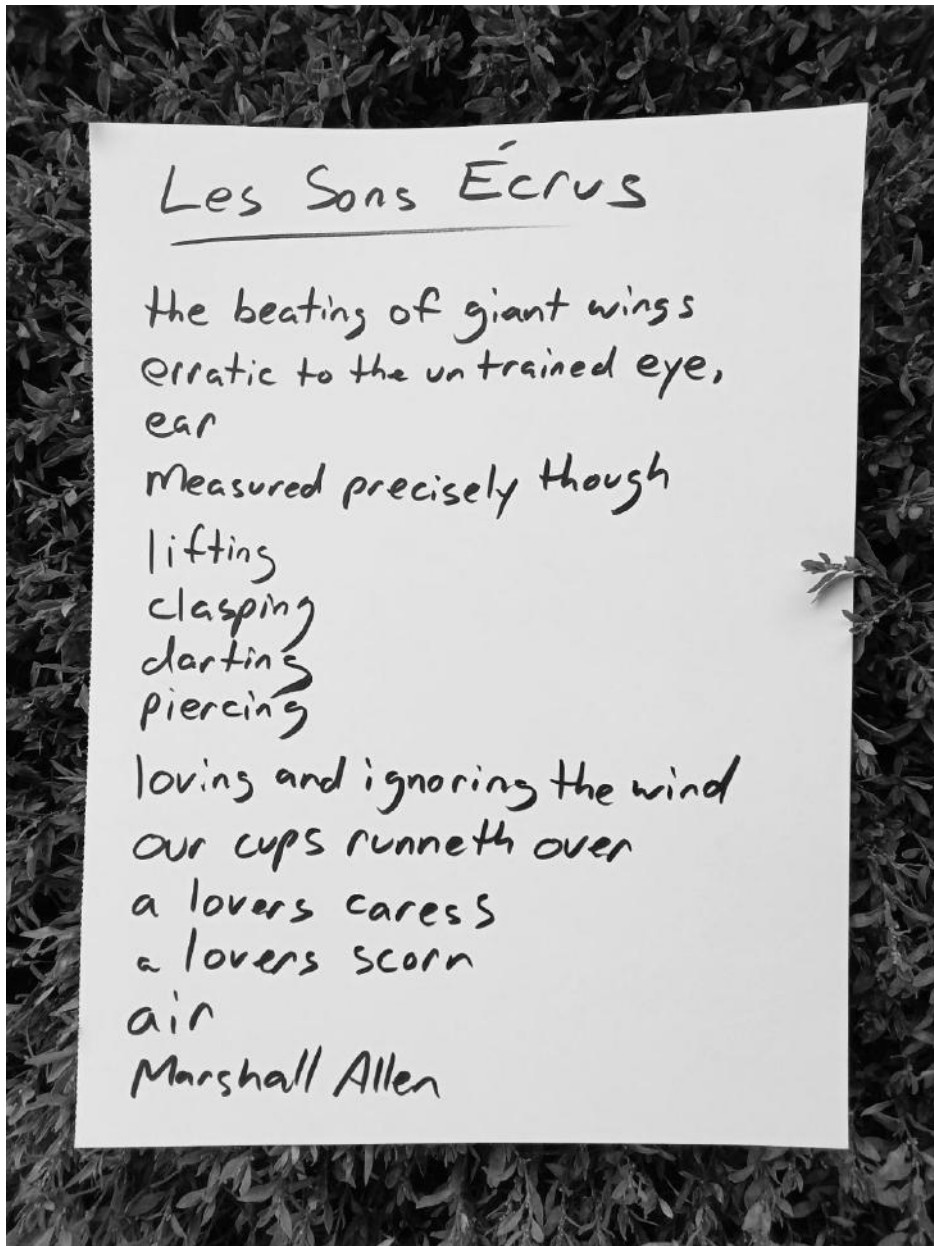 Les Sons Écrus
the beating of giant wings
erratic to the untrained eye,
ear
measured precisely though
lifting
clasping
darting
piercing
loving and ignoring the wind
our cups runneth over
a lovers caress
a lovers scorn
air
Marshall Allen